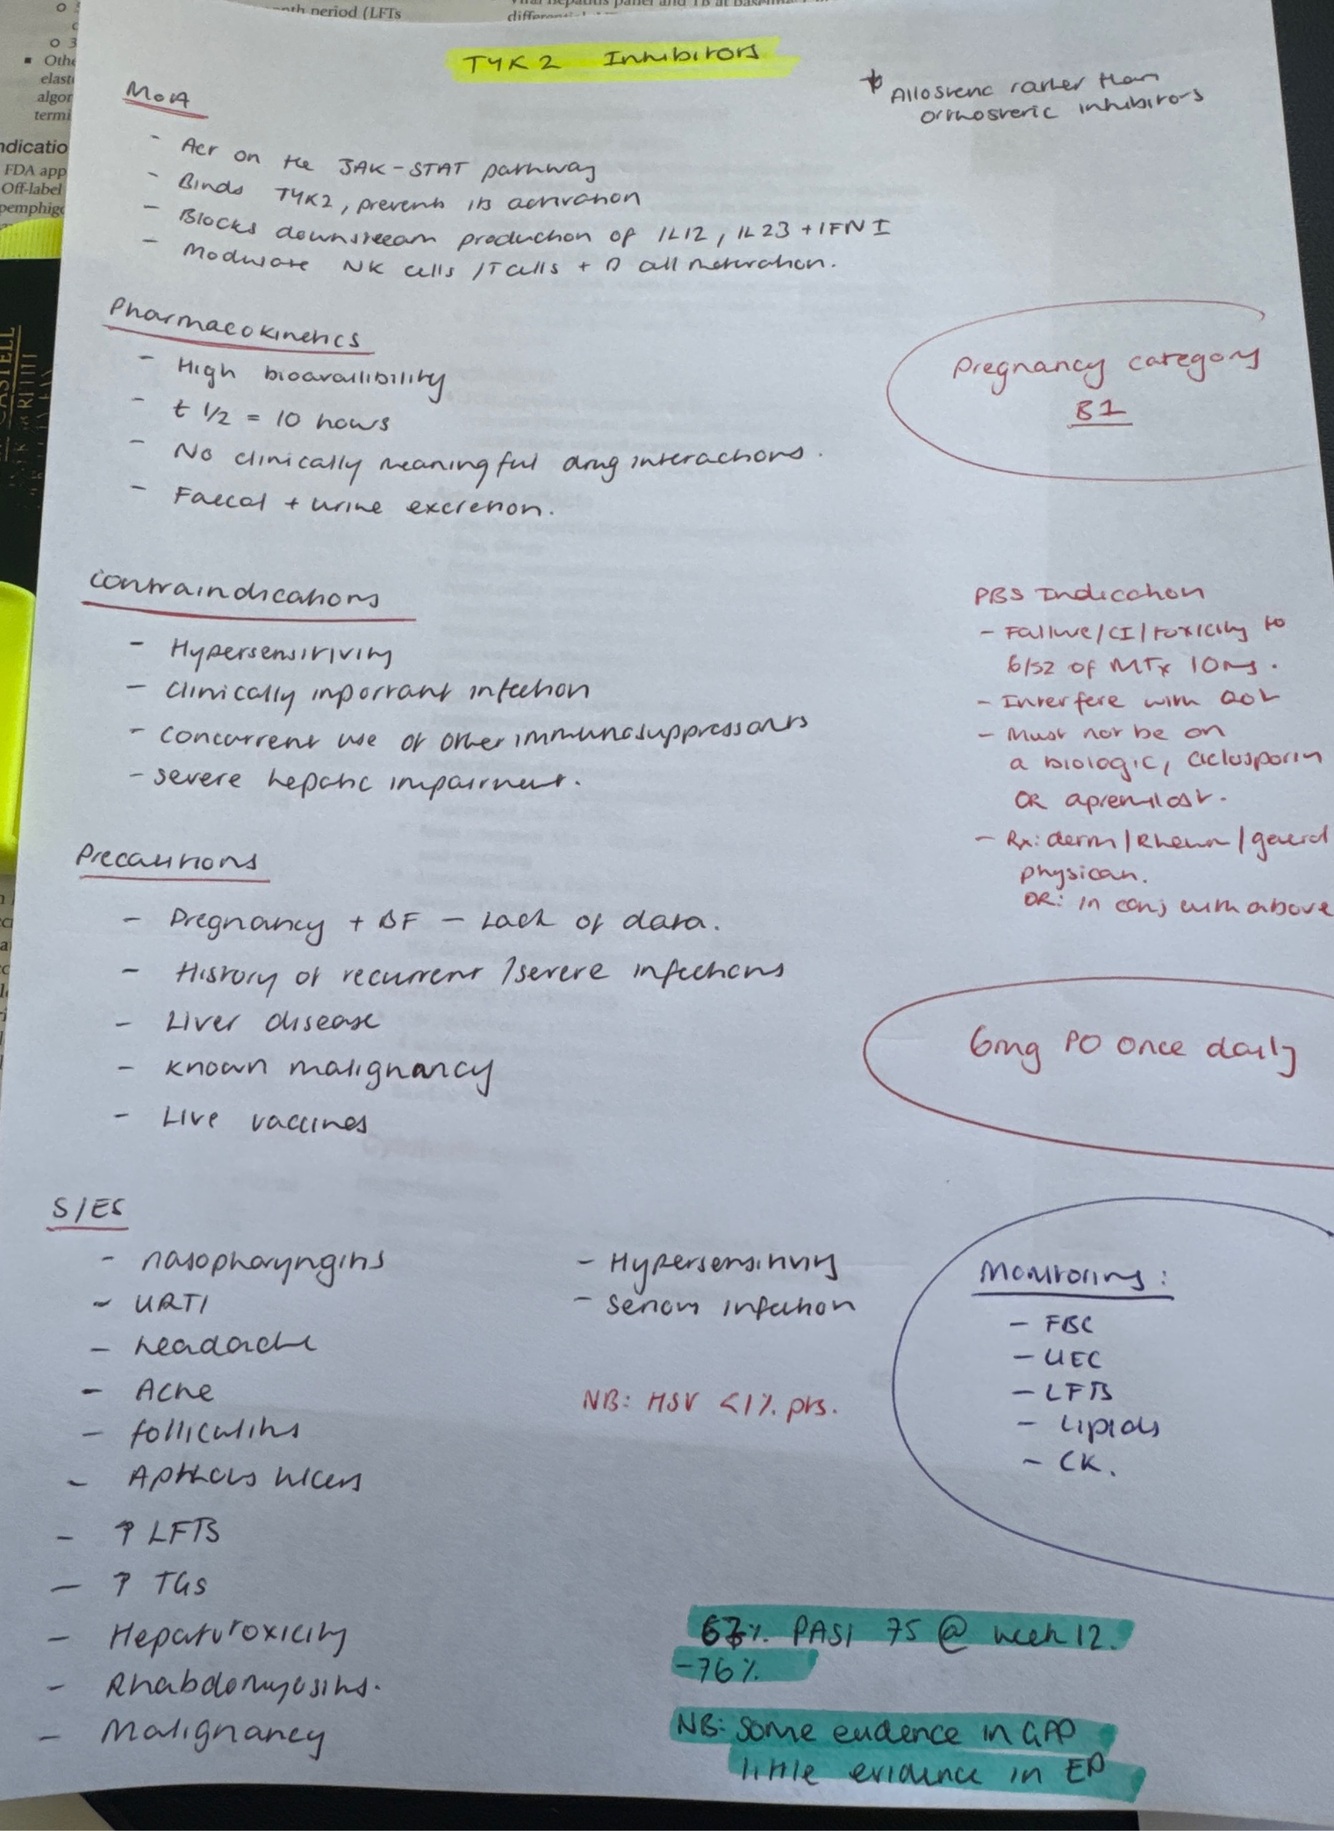 nth period (LFTs
differen
o 3
▪ Othe
elast
algor
termi
ndicatio
FDA app
Off-label
pemphigo
CASTELL
TYK2 Inhibitors
* Allosteric rather than
orthosteric inhibitors
MoA
- Act on the JAK-STAT pathway
- Binds TYK2, prevents its activation
- Blocks downstream production of IL12, IL23 + IFN I
- Modulate NK cells / T cells + B cell maturation.
Pharmacokinetics
- High bioavailibility
- t 1/2 = 10 hours
- No clinically meaningful drug interactions.
- Faecal + urine excretion.
Pregnancy category
B1
Contraindications
- Hypersensitivity
- Clinically important infection
- Concurrent use of other immunosuppressants
- Severe hepatic impairment.
PBS Indication
- Failure/CI/toxicity to
6/52 of MTx 10mg.
- Interfere with QoL
- Must not be on
a biologic, ciclosporin
OR apremilast.
- Rx: derm/Rheum/general
physican.
OR: in conj with above
Precautions
- Pregnancy + BF - Lack of data.
- History of recurrent /severe infections
- Liver disease
- Known malignancy
- Live vaccines
6mg PO once daily
S/ES
- nasopharyngitis
- URTI
- headache
- Acne
- folliculitis
- Apthous ulcers
- ↑ LFTS
- ↑ TGs
- Hepatotoxicity
- Rhabdomyositis.
- Malignancy
- Hypersensitivity
- Serious infection
NB: HSV <1% pts.
Monitoring:
- FBC
- UEC
- LFTs
- Lipids
- CK.
% PASI 75 @ week 12.
-76%
NB: Some evidence in GPP
little evidence in EP